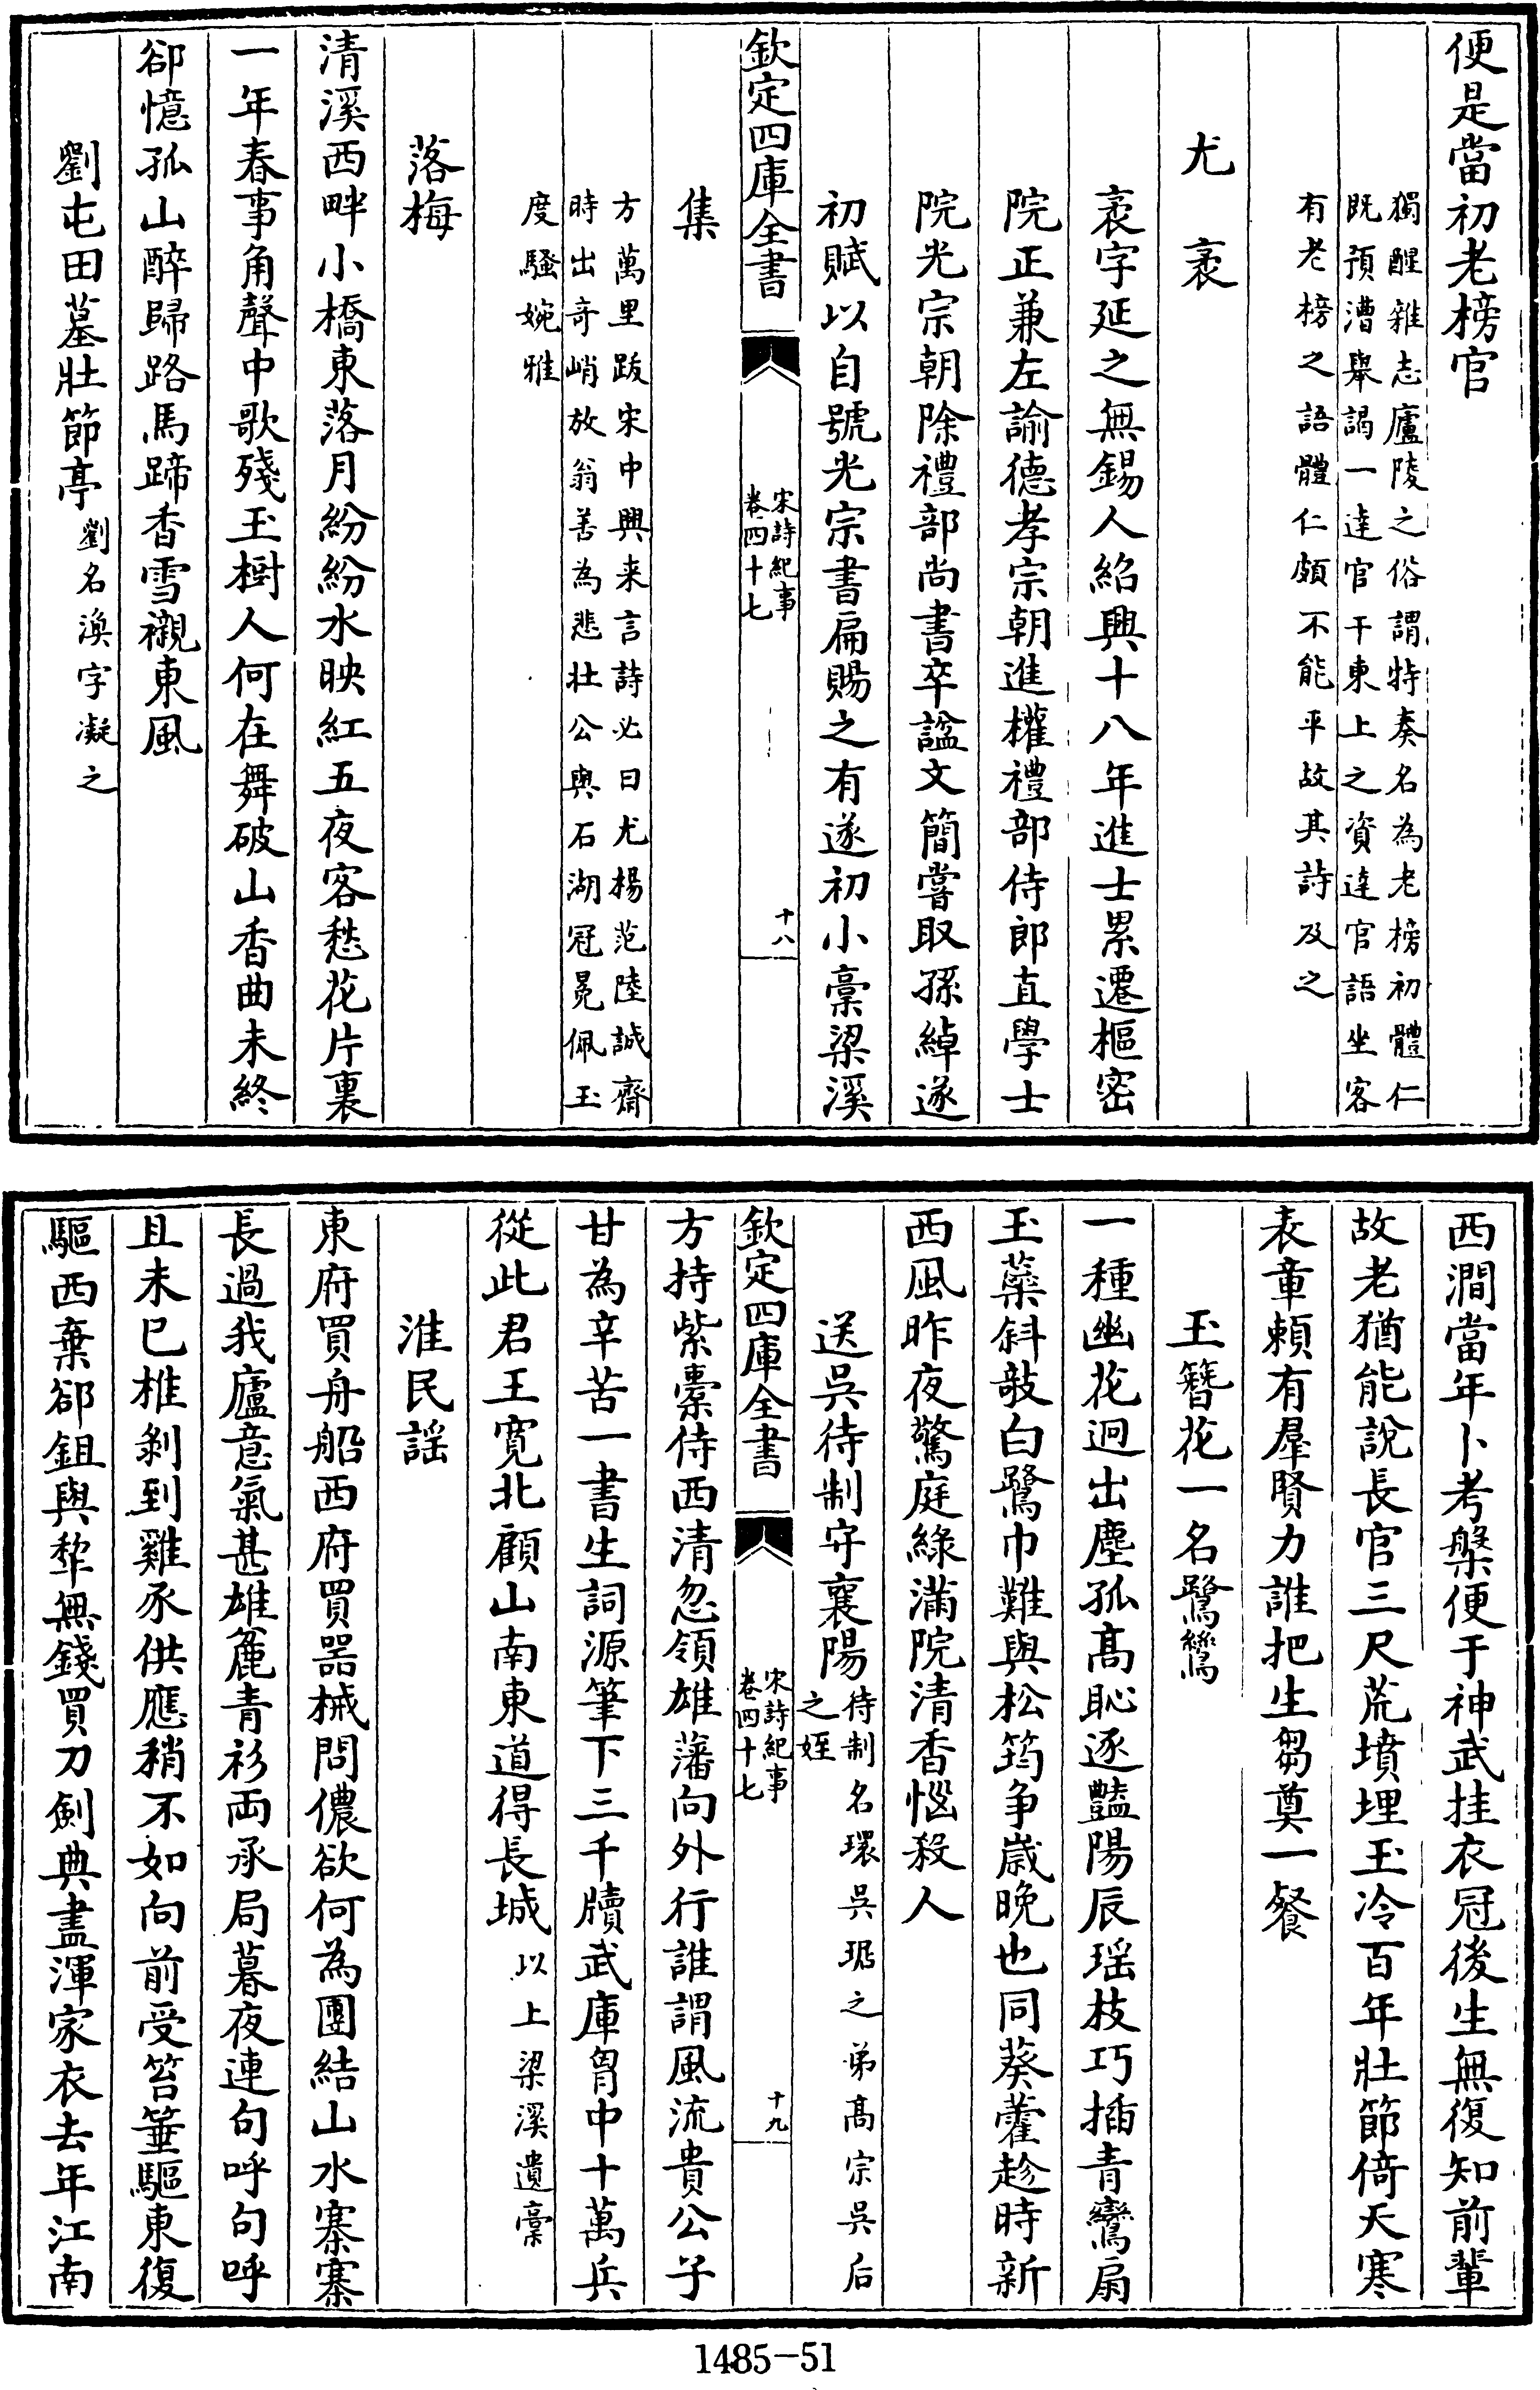 便是當初老榜官
獨醒雜志廬陵之俗謂特奏名為老榜初體仁
既預漕舉謁一達官干東上之資達官語坐客
有老榜之語體仁頗不能平故其詩及之
尤袤
袤字延之無錫人紹興十八年進士累遷樞密
院正兼左諭德孝宗朝進權禮部侍郎直學士
院光宗朝除禮部尚書卒諡文簡嘗取孫綽遂
初賦以自號光宗書扁賜之有遂初小稾梁溪
欽定四庫全書
宋詩紀事
卷四十七
十八
集
方萬里跋宋中興来言詩必曰尤楊范陸誠齋
時出奇峭放翁善為悲壯公與石湖冠冕佩玉
度騷婉雅
落梅
清溪西畔小橋東落月紛紛水映紅五夜客愁花片裏
一年春事角聲中歌殘玉樹人何在舞破山香曲未終
卻憶孤山醉歸路馬蹄香雪襯東風
劉屯田墓壯節亭劉名渙字凝之
西澗當年卜考槃便于神武挂衣冠後生無復知前輩
故老猶能說長官三尺荒墳埋玉冷百年壯節倚天寒
表章賴有羣賢力誰把生芻奠一餐
玉簪花一名鷺鷥
一種幽花迥出塵孤高恥逐豔陽辰瑶枝巧插青鸞扇
玉蘂斜敧白鷺巾難與松筠争嵗晚也同葵藿趁時新
西風昨夜驚庭綠滿院清香惱殺人
送吳待制守襄陽待制名環吳琚之弟高宗吳后
之姪
欽定四庫全書
宋詩紀事
卷四十七
十九
方持紫橐侍西清忽領雄藩向外行誰謂風流貴公子
甘為辛苦一書生詞源筆下三千牘武庫胷中十萬兵
從此君王寛北顧山南東道得長城以上梁溪遺稾
淮民謡
東府買舟船西府買器械問儂欲何為團結山水寨寨
長過我廬意氣甚雄麄青衫両承局暮夜連句呼句呼
且未已椎剝到雞豕供應稍不如向前受笞箠驅東復
驅西棄卻鉏與犂無錢買刀劍典盡渾家衣去年江南
1485-51